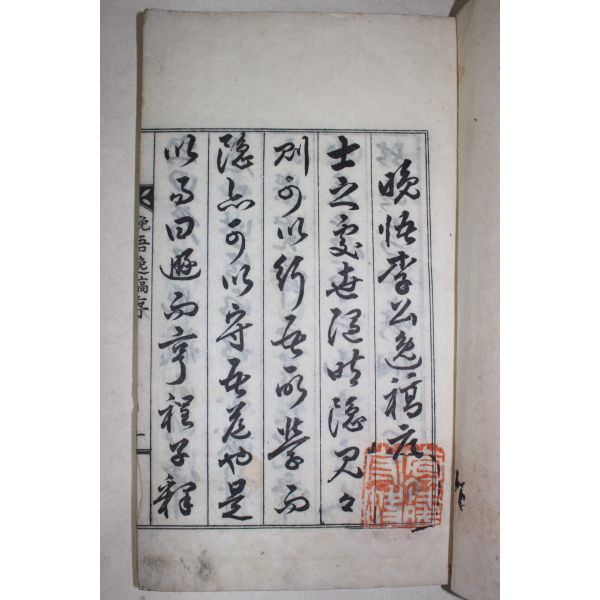 晚悟李公逸稿序
士之處世隨時隱見々
則可以行吾所學而
隱亦可以守吾也是
以易曰遯而亨程子釋
晚悟逸稿序
一